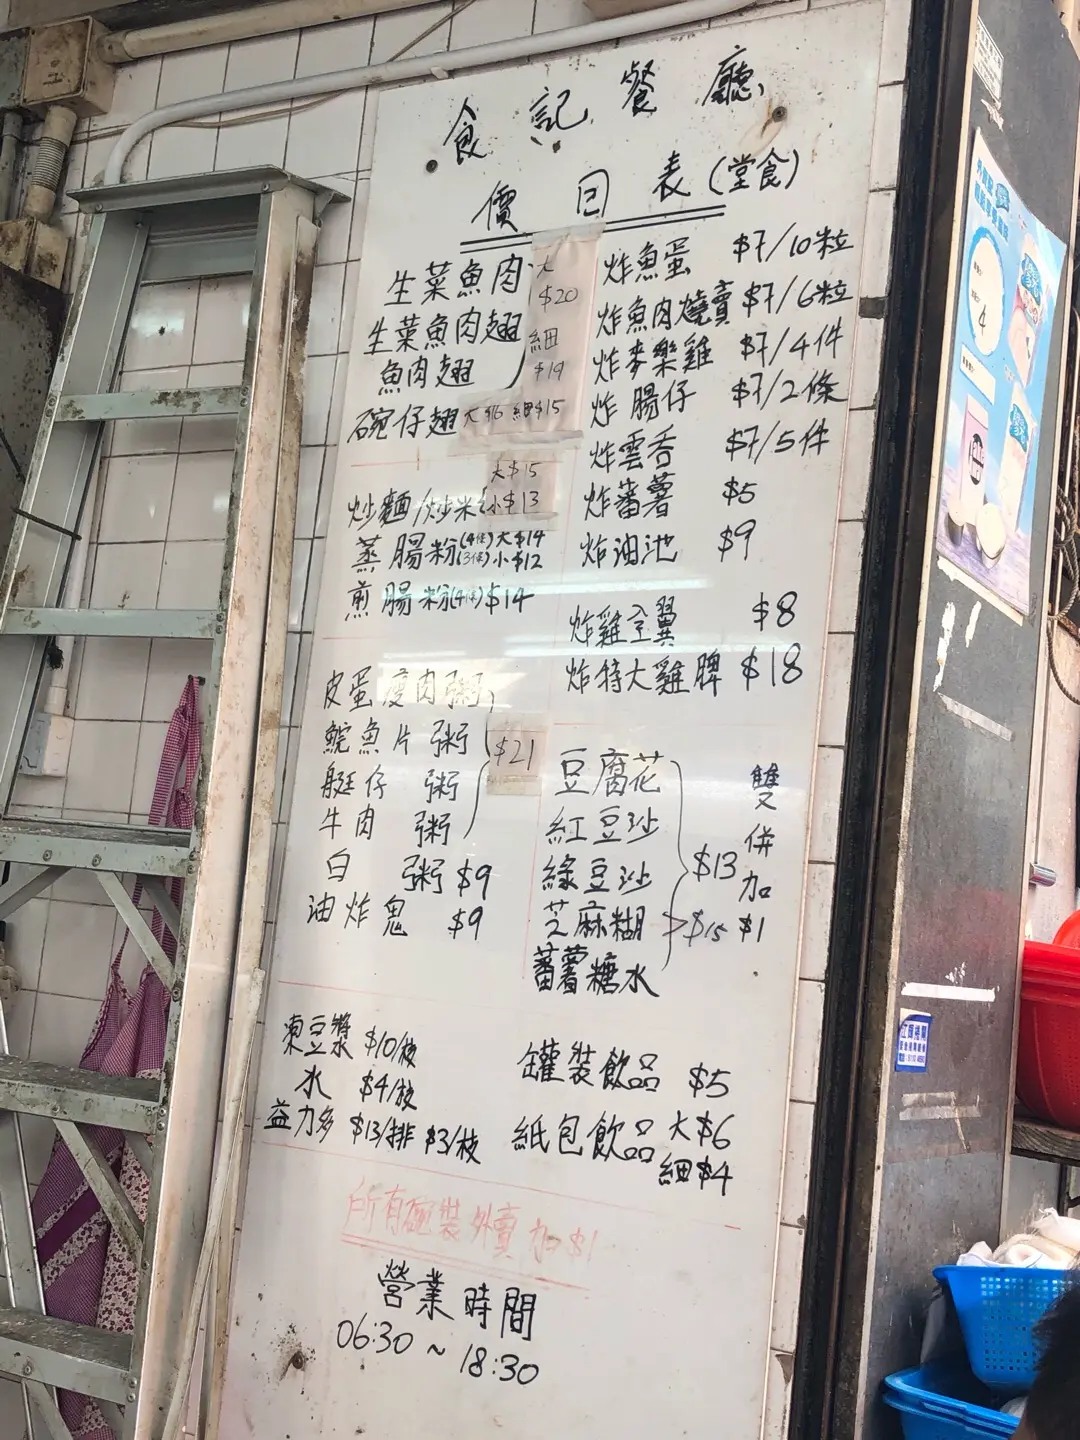 食記餐廳
價目表(堂食)
生菜魚肉
生菜魚肉翅
魚肉翅
大
$20
細
$19
碗仔翅 大$16 細$15
炒麵/炒米
大$15
小$13
蒸腸粉(4條)大$14
(3條)小$12
煎腸粉(4條)$14
炸魚蛋 $7/10粒
炸魚肉燒賣 $7/6粒
炸麥樂雞 $7/4件
炸腸仔 $7/2條
炸雲吞 $7/5件
炸蕃薯 $5
炸油池 $9
炸雞全翼 $8
炸特大雞脾 $18
皮蛋瘦肉粥
鯇魚片粥
艇仔粥
牛肉粥
$21
白粥 $9
油炸鬼 $9
豆腐花
紅豆沙
綠豆沙
芝麻糊 $15
蕃薯糖水
$13
雙併加$1
凍豆漿 $10/枝
水 $4/枝
益力多 $13/排 $3/枝
罐裝飲品 $5
紙包飲品 大$6
細$4
所有碗裝外賣加$1
營業時間
06:30~18:30
4